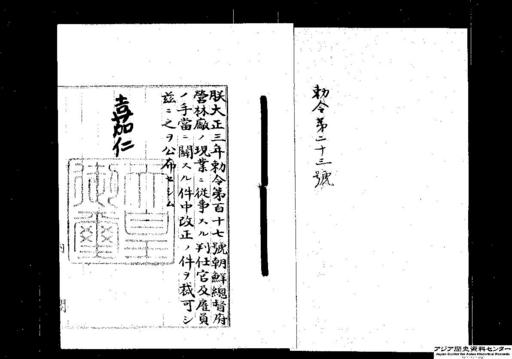 勅令第二十三號
朕大正三年勅令第百十七號朝鮮總督府
營林廠ノ現業ニ從事スル判任官及雇員
ノ手當ニ關スル件中改正ノ件ヲ裁可シ
茲ニ之ヲ公布セシム
嘉仁
天皇御璽
内閣
アジア歴史資料センター
Japan Center for Asian Historical Records